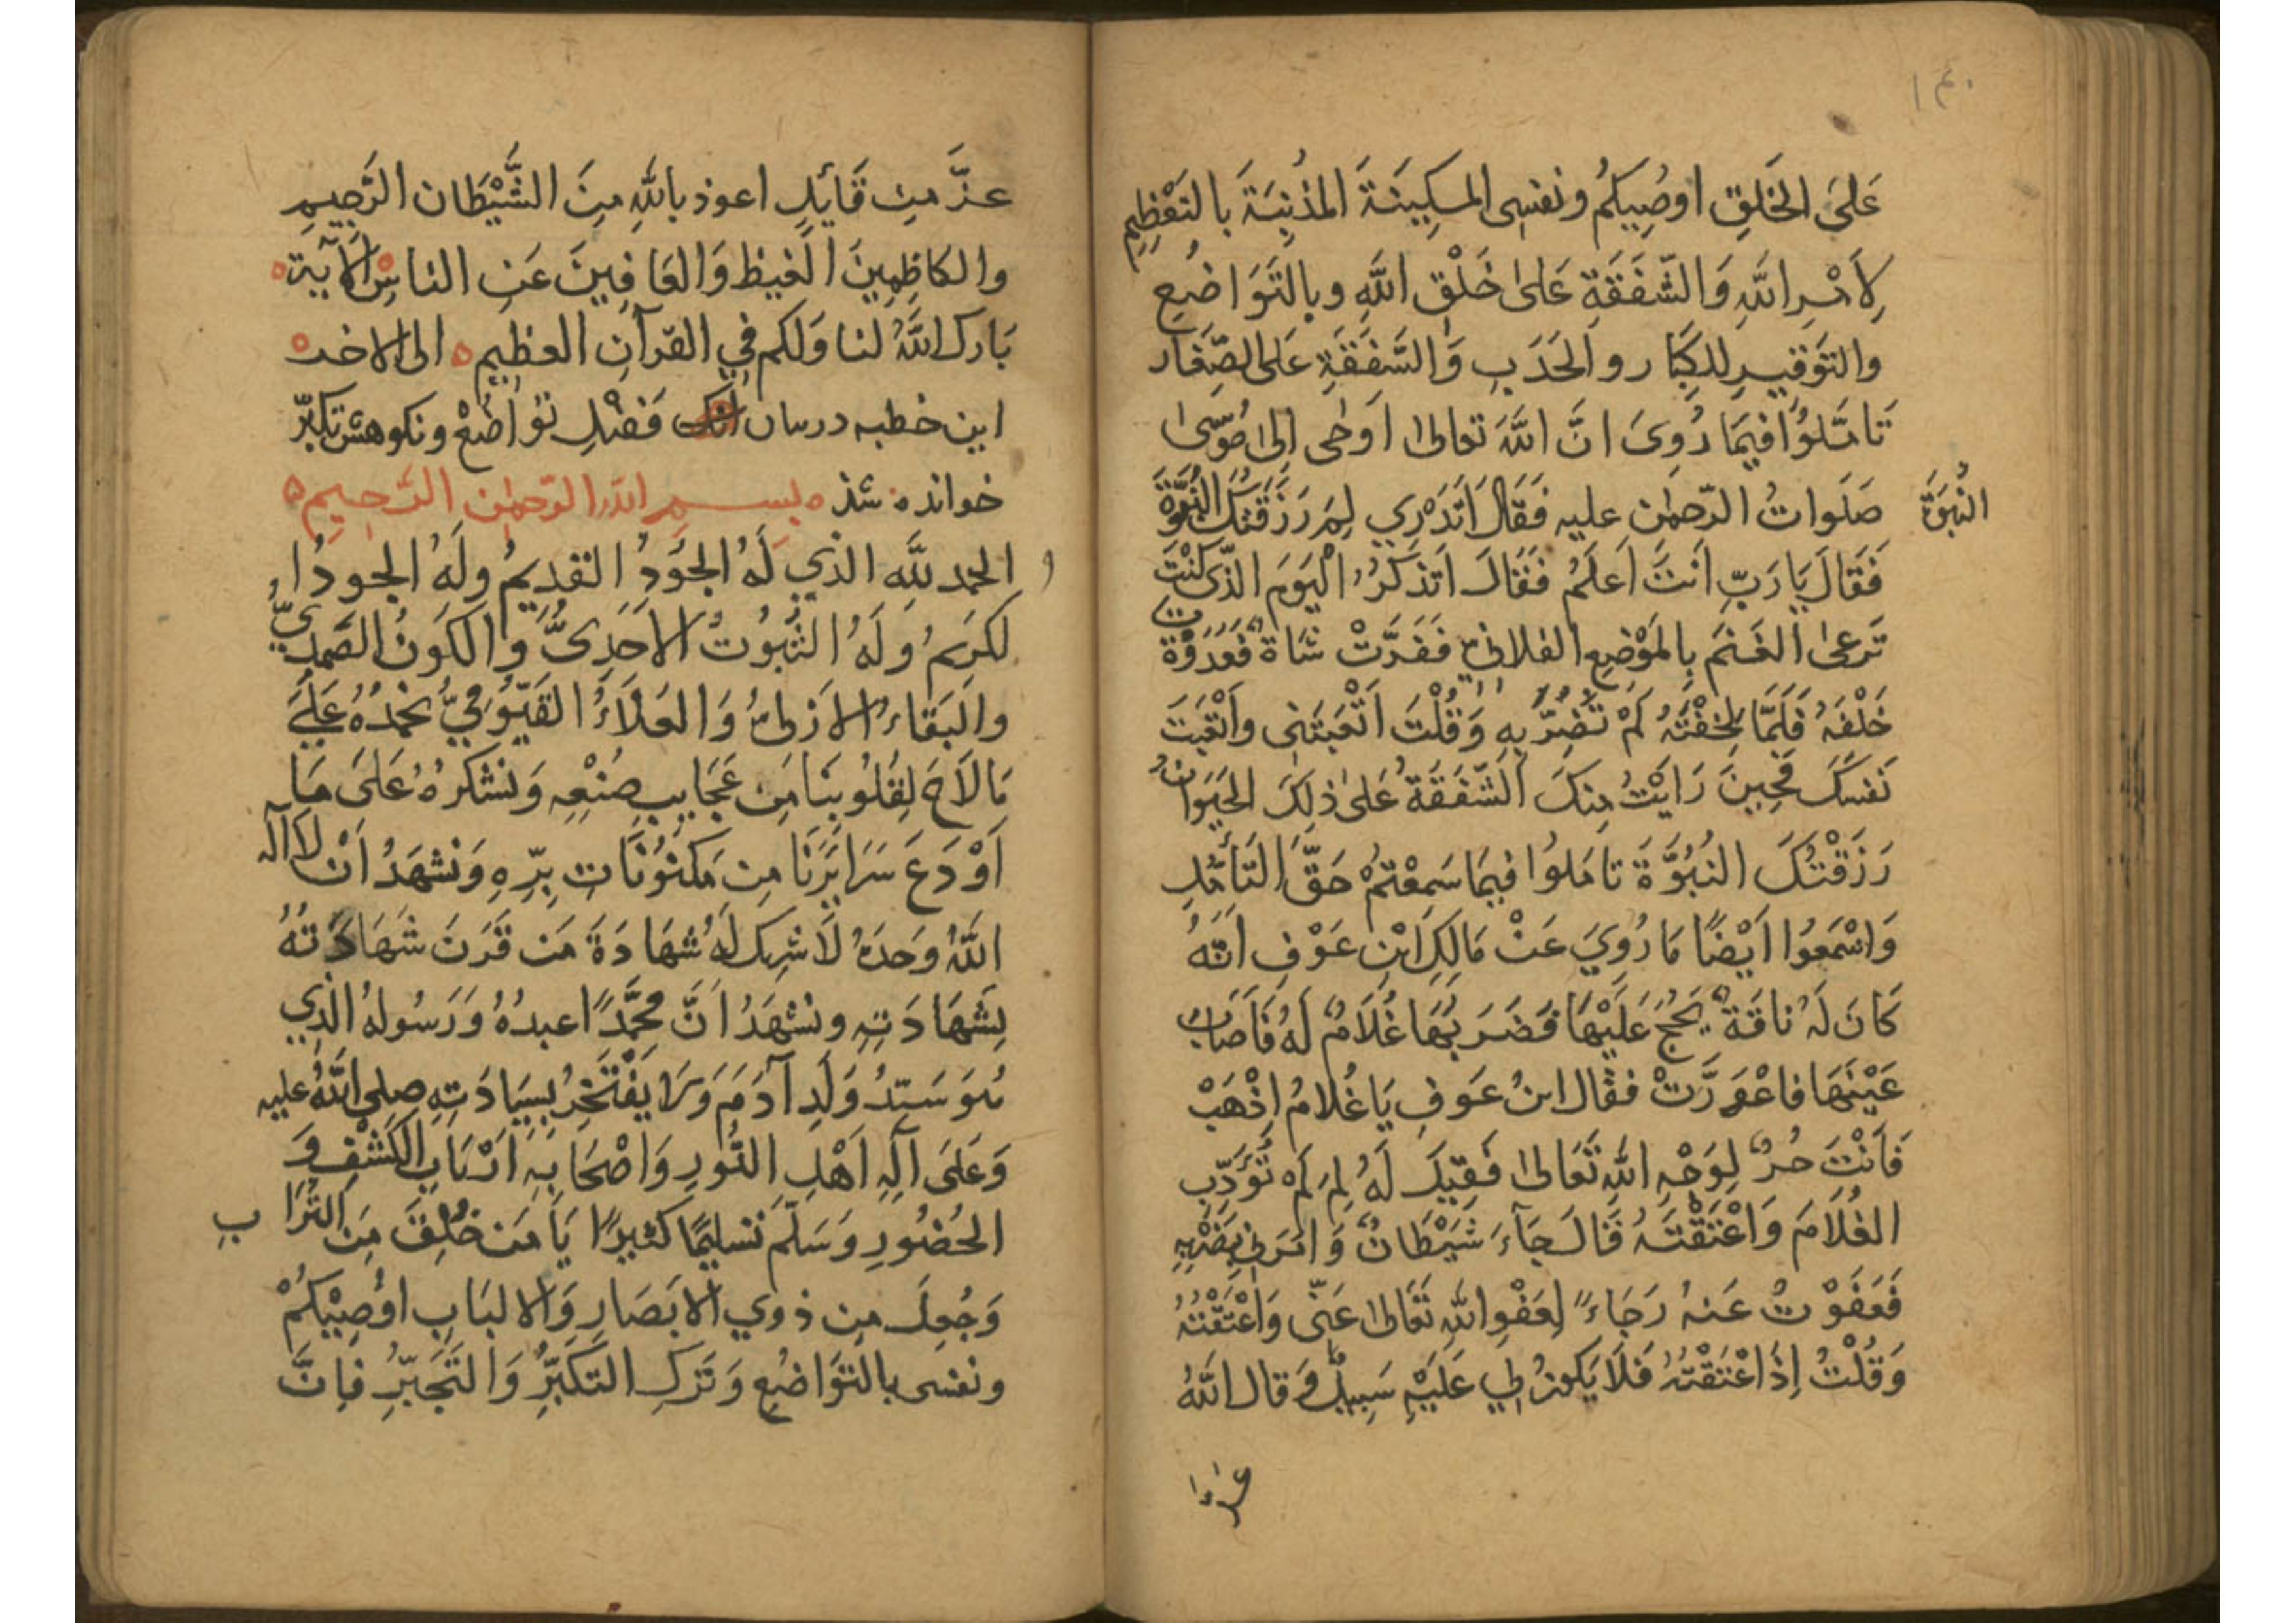 عَلَى الخَلقِ اوصُيِكُمُ ونفسِى المسكِينَةَ المذُنِبَةَ بالتَعْظِيمِ
لِاَمْرِ اللهِ وَالشّفَقَةِ عَلىٰ خَلْقِ اللهِ وبالتَوَاضُعِ
والتَوقيرِ للكِبَار والحَدَبِ وَالشَفَقَةِ عَلى الصِّغَار
تَامَّلوُا فيمَا رُوِىَ انَّ اللهَ تعالىٰ اَوحٰى اِلىٰ مُوسىٰ
صَلَواتُ الرّحمٰنِ عليه فَقَالَ اَتَدْرِي لِمَ رَزَقتُكَ النُبُوَّةَ
النُبوَّة
فَقَالَ يَا رَبِّ اَنتَ اَعلَمُ فَقَالَ اَتَذكُرُ اليَومَ الذّى كنْتَ
تَرعىٰ الغَنَمَ بِالمَوْضِعِ الفلانِيِّ فَفَرَّتْ شَاة فَعَدَوْتَ
خَلْفَهُ فَلَمَّا لِحقْتَهُ لَمْ تَضُرَّ بِهِ وَقُلْتَ اَتْعَبتَنِى واَتْعَبتَ
نَفسَكَ فَحِينَ رَايَتُ مِنكَ الشّفَقَةَ عَلىٰ ذلِكَ الحَيَوانِ
رَزَقْتُكَ النُبُوَّةَ تَامَلوُا فيمَا سَمِعْتمُ حَقَّ التَأمُّلِ
وَاسْمَعوُا اَيْضًا مَا رُوِيَ عَنْ مَالِكِ ابْنِ عَوْفٍ اَنّهُ
كَانَ لَهُ ناقَة يَحُجُّ عَلَيْهَا فَضَرَبَهَا غُلَامٌ لَهُ فَاَصَابَ
عَيْنَهَا فاعْوَرَّتْ فقَال ابنُ عَوفٍ يَا غُلامُ اِذْهَبْ
فَاَنْتَ حُرٌّ لِوَجْهِ اللهِ تَعَالىٰ فَقِيلَ لَهُ لِمَ لَمْ تُؤَدِّبِ
الغُلَامَ وَاَعْتَقْتَهُ قَالَ جَآءَ شَيْطَانٌ وَامَرَنِي بِضَرْبِهِ
فَعَفَوْتُ عَنهُ رَجَاءً لِعَفْوِ اللهِ تَعَالىٰ عَنّى وَاَعْتَقْتُهُ
وَقُلْتُ اِذَا اعْتَقْتُهُ فَلَا يَكونُ لِي عَلَيْهِ سَبِيلٌ وَقال اللهُ
عزّ من
عزَّ مِن قَائِلٍ اعوذ باللهِ مِنَ الشَّيْطَان الرَّجِيمِ
والكاظِمِينَ الغَيظ وَالعَافِينَ عَنِ الناسِ الآية
بَارك اللهُ لنا وَلكم في القرآنِ العظيمِ الى الاخر
اين خطبه دربيان فَضْلِ تَوَاضُعْ ونكوهش تكبرّ
خوانده شذ بسم الله الرّحمٰن الرَّحِيمِ
الحمد للهِ الذي لَهُ الجُودُ القدِيمُ ولَهُ الجودُ ا
لكَرِيمُ ولَهُ الثُبُوتُ الاَحَدِىُّ وَالكَونُ الصَمدِىُّ
والبَقاءُ الاَزلىُّ وَالعَلَاءُ القَيّوُمِيُّ نحْمَدُهُ عَلَى
مَا لَاحَ لِقُلُوبِنَا مِن عَجَايِبِ صُنْعِهِ وَنشْكرُهُ عَلَى مَا
اَوْدَعَ سَرَايِرَنَا مِن مَكنوُنَاتِ بِرِّهِ وَنشهَدُ اَنْ لَا اله
اللهُ وَحدَهُ لَا شريك لَهُ شهَادَةَ مَن قَرَنَ شَهَادَتَهُ
بِشَهَادَتِهِ ونشْهَدُ اَنَّ مُحَمَّدًا عبدُهُ وَرَسُولهُ الذِي
هُوَ سَيّدُ وَلَدِ آدَمَ وَلَا يَفْتَخِرُ بِسِيَادَتِهِ صلى اللهُ عليه
وَعَلَى آلِهِ اَهْلِ النُّورِ وَاَصْحَابِهِ اَرْبَابِ الكَشْفِ وَ
الحُضُورِ وَسَلّمَ تَسليمًا كَثيرًا يَا مَن خُلِقَ مِنَ التُرَابِ
وَجُعِلَ مِن ذوي الابَصَارِ وَالالبَابِ اوُصِيْكُمْ
ونفسى بالتوَاضُعِ وَتَركِ التَكَبُّرِ وَالتَجَبُّرِ فاِنَّ